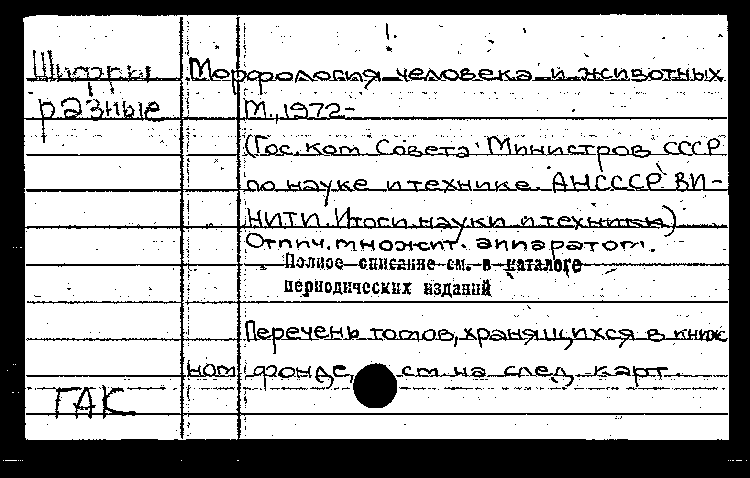 Шифры
разные
Морфология человека и животных
М., 1972-
(Гос. ком. Совета Министров СССР
по науке и технике. АН СССР. ВИ-
НИТИ. Итоги науки и техники)
Отпеч. множит. аппаратом.
Полное описание см. в каталоге
периодических изданий
Перечень томов, хранящихся в книж
ном фонде, см на след. карт.
ГАК